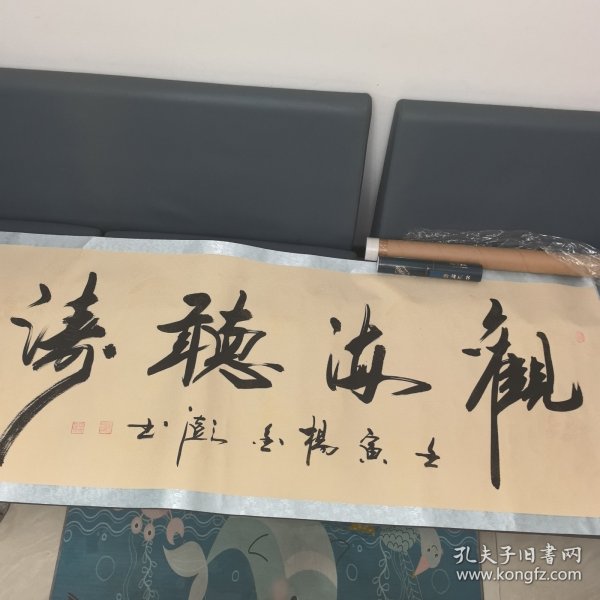 觀海聽濤
壬寅楊金澎书
孔夫子旧書网
www.kongfz.com